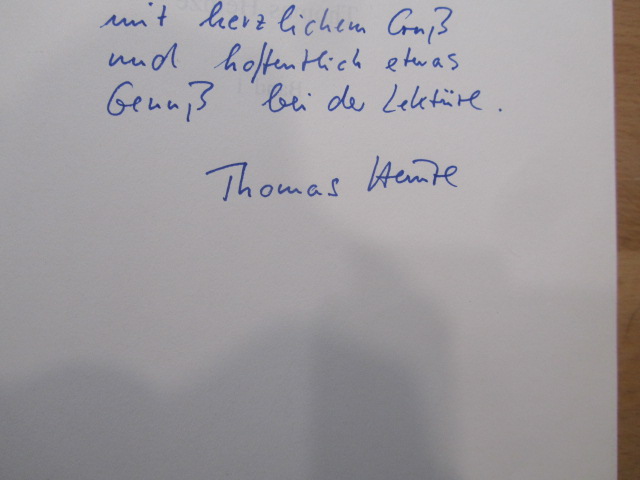 mit herzlichem Gruß
und hoffentlich etwas
Genuß bei der Lektüre.
Thomas Heinze